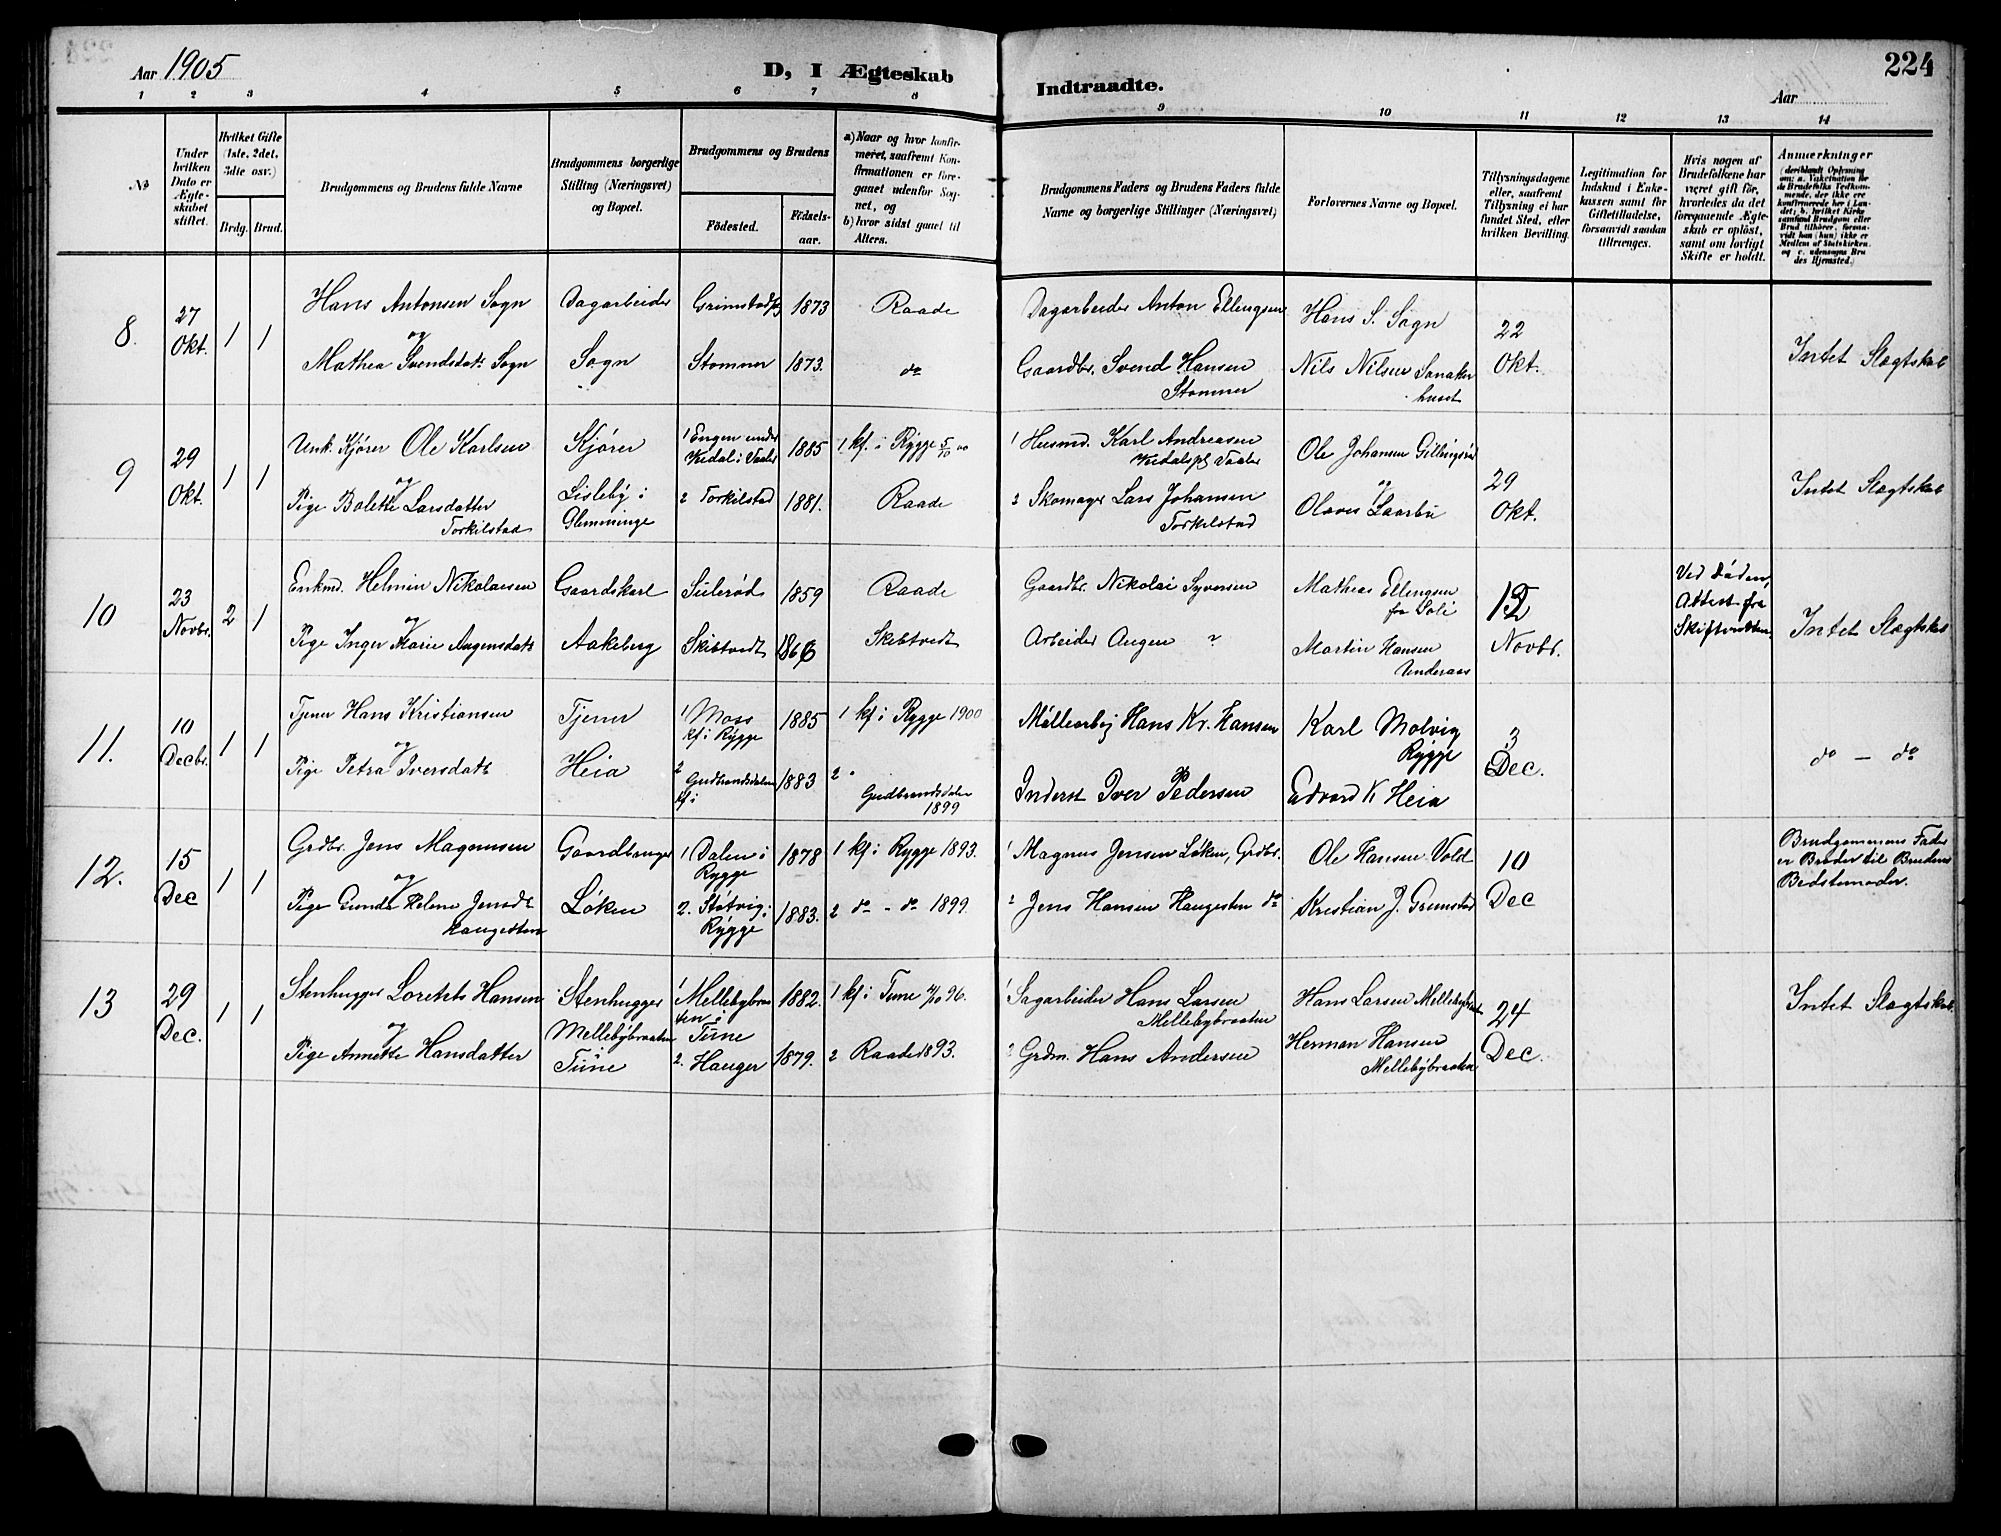 Aar 1905
D, I Ægteskab
Indtraadte.
224
Aar
1 2 3 4 5 6 7 8 9 10 11 12 13 14
No
Under hvilken Dato er Ægteskabet stiftet.
Hvilket Gifte (1ste, 2det, 3dte osv.)
Brdg. Brud.
Brudgommens og Brudens fulde Navne
Brudgommens borgerlige Stilling (Næringsvei) og Bopæl.
Brudgommens og Brudens
Födested.
Födselsaar.
a) Naar og hvor konfirmeret, saafremt Konfirmationen er foregaaet udenfor Sognet, og
b) hvor sidst gaaet til Alters.
Brudgommens Faders og Brudens Faders fulde Navne og borgerlige Stillinger (Næringsvei)
Forlovernes Navne og Bopæl.
Tillysningsdagene eller, saafremt Tillysning ei har fundet Sted, efter hvilken Bevilling.
Legitimation for Indskud i Enkekassen samt for Giftetilladelse, forsaavidt saadan tiltrænges.
Hvis nogen af Brudefolkene har været gift för, hvorledes da det foregaaende Ægteskab er oplöst, samt om lovligt Skifte er holdt.
Anmærkninger
8. 27 Okt. 1 1
Hans Antonsen Sogn
og
Mathea Svendsdatr Sogn
Dagarbeider
Sogn
Grimstadpl 1873 Raade
Stommer 1873. do
Dagarbeider Anton Ellingsen
Gaardbr. Svend Hansen
Stommer
Hans S. Sogn
Nils Nilsen Sanaker
huset
22 Okt.
Intet Slægtskab
9 29 Okt. 1 1
Unk. Kjörer Ole Karlsen
og
Pige Bolette Larsdatter
Torkilstad
Kjörer
Lisleby i
Glemminge
1 Engen under
Kedal i Vaaler 1885 1 kf. i Rygge 5/10 00
2 Torkilstad 1881. Raade
1 Husmd. Karl Andreasen
Kedalspl Vaaler
2 Skomager Lars Johansen
Torkilstad
Ole Johansen
og
29 Okt.
Intet Slægtskab
10 23 Novbr. 2 1
Enkmd. Helmin Nikolaisen
og
Pige Inger Marie Augensdatr
Gaardskarl
Aakeberg
Suleröd 1859 Raade
Skibtvedt 1866 Skibtvedt
Gaardbr. Nikolai Syversen
Arbeider Augen ?
Mathias Ellingsen
fra Soli
Martin Hansen
Underaas
12 Novbr.
Ved Döden,
Attest fra
Skifteretten
Intet Slægtskab
11. 10 Decbr. 1 1
Tjener Hans Kristiansen
og
Pige Petra Iversdatr
Tjener
Heia
1 Moss
kf i Rygge 1885 1 kf i Rygge 1900
2 Gudbrandsdalen
kf i 1883 2 "
Gudbrandsdalen
1899
Möllearbej Hans Kr. Hansen
Inderst Iver Pedersen
Karl Molvig
Rygge
Edvard K Heia
3 Dec.
do - do
12. 15 Dec 1 1
Grdbr. Jens Magnusen
og
Pige Gunda Helene Jensdt
Haugesten
Gaardbruger
Löken
1 Dalen i
Rygge 1878 1 kf i Rygge 1893.
2. Störvig i
Rygge 1883. 2 do - do 1899.
1 Magnus Jensen Löken, Grdbr.
2 Jens Hansen Haugesten do
Ole Hansen Vold
Kristian J. Grimstad
10 Dec
Brudgommens Fader
er Broder til Brudens
Bedstemoder.
13 29 Dec. 1 1
Stenhugger Lorents Hansen
og
Pige Annette Hansdatter
Stenhugger
Mellebybraaten
Tune
1 Mellebybraa
ten i
Tune 1882. 1 kf i Tune 4/10 96.
2. Hauger 1879. 2 Raade 1893.
1 Sagarbeider Hans Larsen
Mellebybraaten
2 Grdm. Hans Andersen
Hans Larsen Mellebybraat
Herman Hansen
Mellebybraaten
24 Dec.
Intet Slægtskab.